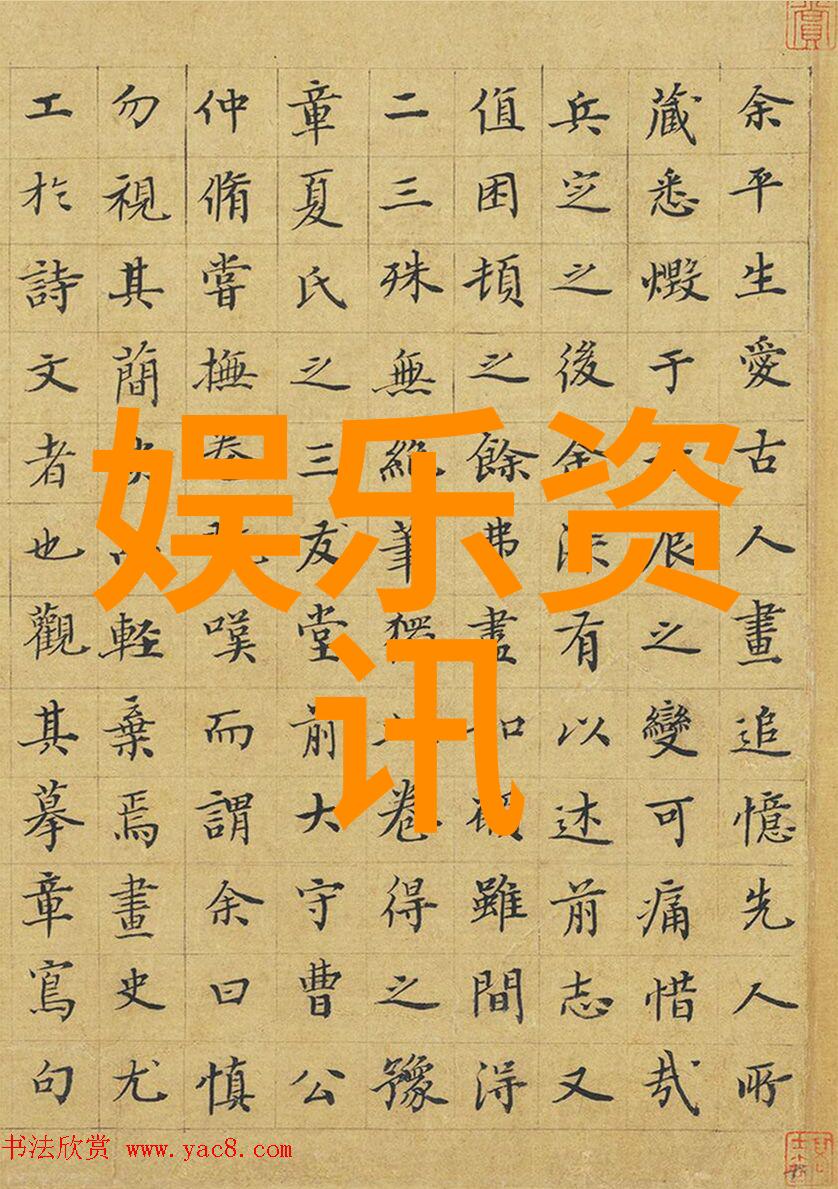 余平生愛古人畫追憶先人所
藏悉燬于辰之變可痛惜哉
兵定之後余深有以述前志又
值困頓之餘弗盡如願雖間得
二三殊無絕筆獨卷得之豫
章夏氏之三友堂前大守曹公
仲脩嘗撫卷嘆而謂余曰慎
勿視其簡輕棄焉畫史尤
工於詩文者也觀其摹章寫句
娱乐资
讯
书法欣赏 www.yac8.com